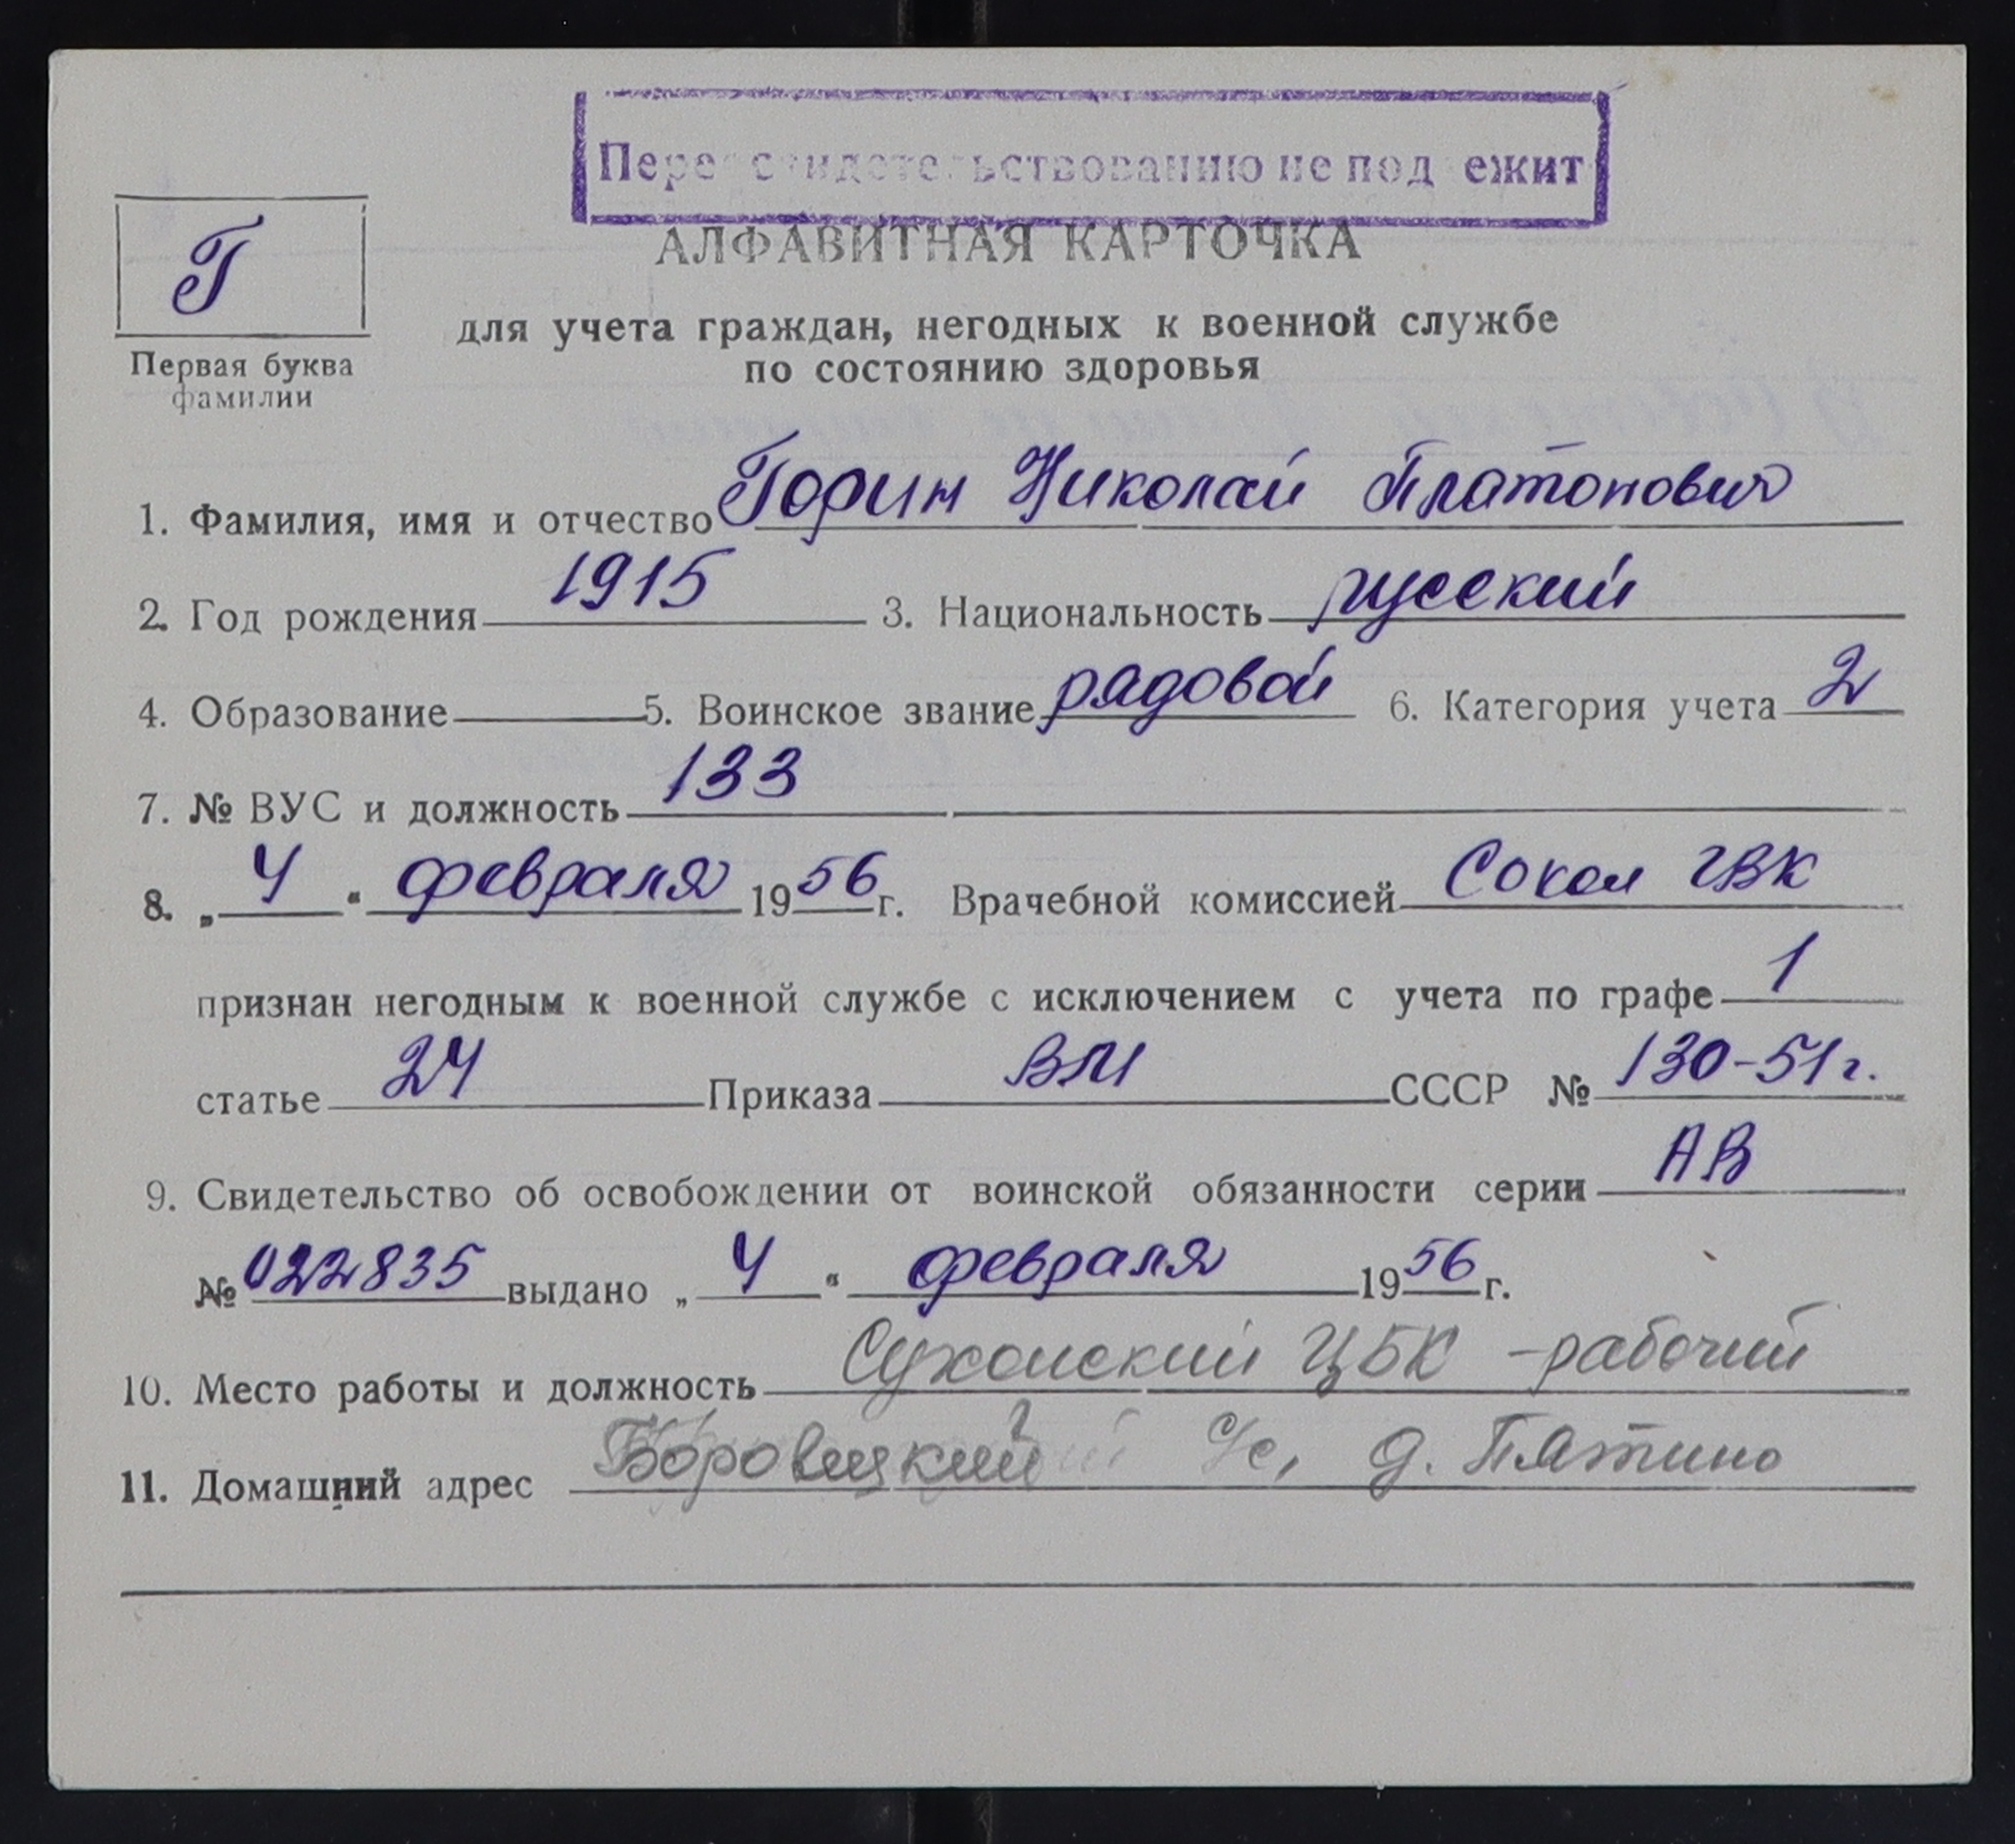 Переосвидетельствованию не подлежит
АЛФАВИТНАЯ КАРТОЧКА
для учета граждан, негодных к военной службе
по состоянию здоровья
Г
Первая буква
фамилии
1. Фамилия, имя и отчество Горин Николай Платонович
2. Год рождения 1915 3. Национальность русский
4. Образование 5. Воинское звание рядовой 6. Категория учета 2
7. № ВУС и должность 133
8. „4“ февраля 1956 г. Врачебной комиссией Сокол ГВК
признан негодным к военной службе с исключением с учета по графе 1
статье 24 Приказа ВМ СССР № 130-51 г.
9. Свидетельство об освобождении от воинской обязанности серии АВ
№ 022835 выдано „4“ февраля 1956 г.
10. Место работы и должность Сухонский ЦБК - рабочий
11. Домашний адрес Боровецкий с/с, д. Пятино